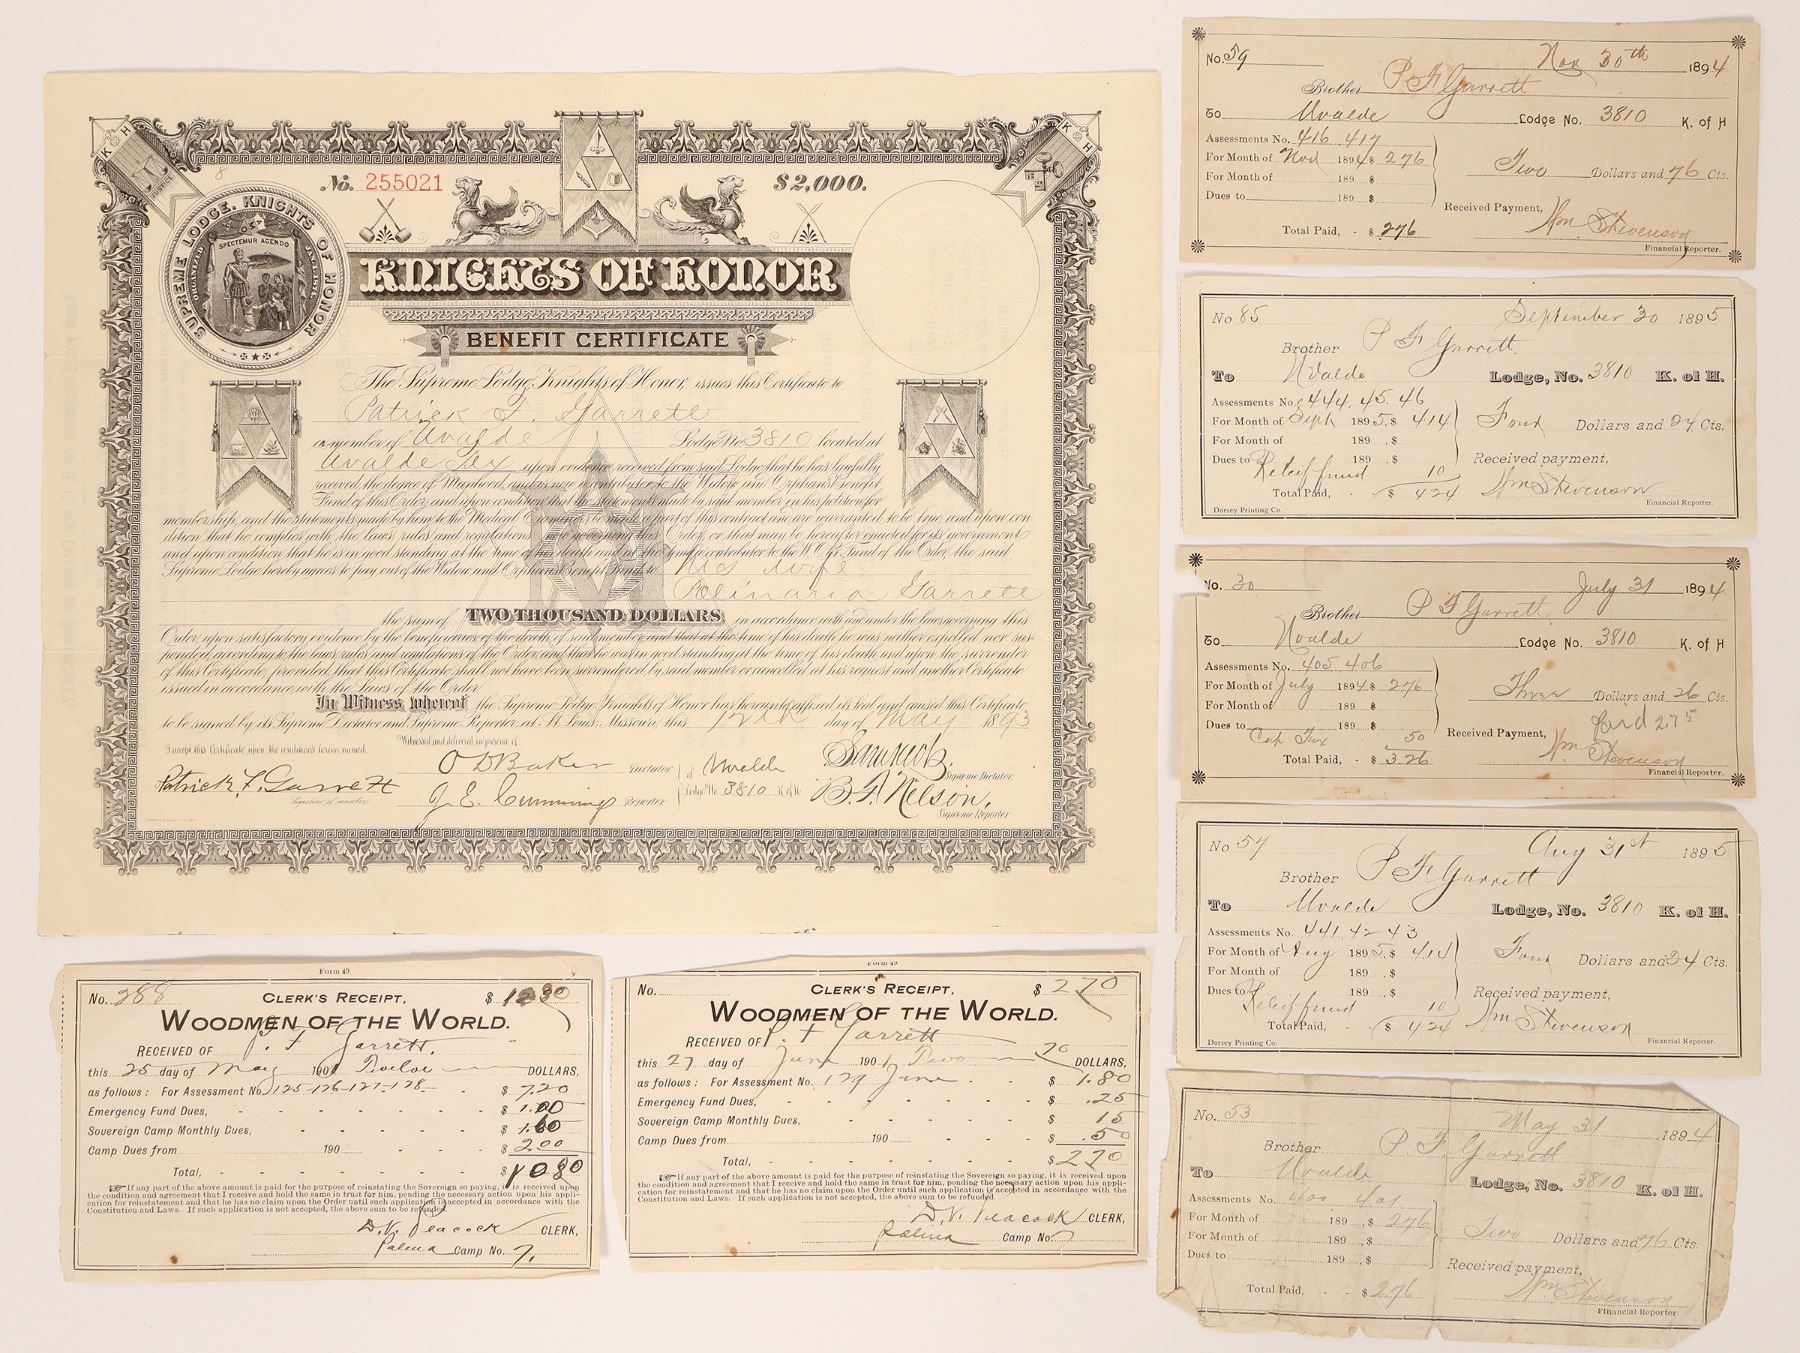 No. 255021
$2,000.
SUPREME LODGE, KNIGHTS OF HONOR
SPECTEMUR AGENDO
KNIGHTS OF HONOR
BENEFIT CERTIFICATE
The Supreme Lodge, Knights of Honor, issues this Certificate to
Patrick F. Garrett
a member of Uvalde Lodge No 3810 located at
Uvalde Tex upon evidence received from said Lodge that he has lawfully
received the degree of Manhood, and is now a contributor to the Widow and Orphan's Benefit
Fund of this Order, and upon condition that the statements made by said member in his petition for
membership, and the statements made by him to the Medical Examiner be made a part of this contract and are warranted to be true, and upon con
dition that he complies with the laws, rules and regulations now governing this Order, or that may be hereafter enacted for its government
and upon condition that he is in good standing at the time of his death and at the time a contributor to the W.O.B. Fund of the Order, the said
Supreme Lodge hereby agrees to pay out of the Widow and Orphans Benefit Fund to his wife
Polinaria Garrett
the sum of TWO THOUSAND DOLLARS in accordance with and under the laws governing this
Order, upon satisfactory evidence by the beneficiaries of the death of said member, and that at the time of his death he was neither expelled nor sus-
pended, according to the laws, rules and regulations of the Order, and that he was in good standing at the time of his death, and upon the surrender
of this Certificate, provided, that this Certificate shall not have been surrendered by said member or cancelled at his request and another Certificate
issued in accordance with the Laws of the Order.
In Witness whereof the Supreme Lodge Knights of Honor has hereunto affixed its seal and caused this Certificate,
to be signed by its Supreme Dictator and Supreme Reporter at St. Louis, Missouri, this 12th day of May 1893
I accept this Certificate upon the conditions herein named.
Witnessed and delivered in presence of
Patrick F. Garrett
Signature of member
O D Baker Dictator of Uvalde
J. E. Cummings Reporter Lodge No 3810 K of H.
Supreme Dictator.
B. F. Nelson, Supreme Reporter.
No. 59 Nov 30th 1894
Brother P F Garrett
To Uvalde Lodge No. 3810 K. of H
Assessments No. 416. 417
For Month of Nov 1894 $ 2 76
For Month of 189 $
Dues to 189 $
Two Dollars and 76 Cts.
Received Payment,
Total Paid, - $ 2 76 Wm Stevenson
Financial Reporter.
No 85 September 30 1895
Brother P F Garrett.
To Uvalde Lodge, No. 3810 K. of H.
Assessments No. 444. 45. 46
For Month of Sept 1895, $ 4 14
For Month of 189 , $
Dues to Relief fund 189 , $ 10
Four Dollars and 24 Cts.
Received payment,
Total Paid, - $ 4 24 Wm Stevenson
Financial Reporter.
Dorsey Printing Co.
No. 30 July 31 1894
Brother P F Garrett
To Uvalde Lodge No. 3810 K. of H
Assessments No. 405, 406
For Month of July 1894 $ 2 76
For Month of 189 $
Dues to 189 $ 50
Three Dollars and 26 Cts.
Received Payment,
Total Paid, - $ 3.26 Wm. Stevenson
Financial Reporter.
No 57 Aug 31st 1895
Brother P F Garrett
To Uvalde Lodge, No. 3810 K. of H.
Assessments No. 441, 42 - 43
For Month of Aug 1895, $ 4 14
For Month of 189 , $
Dues to Relief fund 189 , $ 10
Four Dollars and 24 Cts.
Received payment,
Total Paid, - $ 4 24 Wm Stevenson
Financial Reporter.
Dorsey Printing Co.
No. 53 May 31 1894
Brother P. F. Garrett
To Uvalde Lodge, No. 3810 K. of H.
Assessments No. 400 401
For Month of 189 , $ 2 76
For Month of 189 , $
Dues to 189 , $
Two Dollars and 76 Cts.
Received payment,
Total Paid, - - $ 2 76 Wm Stevenson
Financial Reporter.
Form 49.
No. 288 CLERK'S RECEIPT, $
WOODMEN OF THE WORLD.
RECEIVED OF P. F Garrett.
this 25 day of May 1901 Twelve DOLLARS,
as follows: For Assessment No. 125-126-127-128 - $ 7.20
Emergency Fund Dues, - $ 1.00
Sovereign Camp Monthly Dues, - $ 1.60
Camp Dues from 190 - $ 2.00
Total, - $
If any part of the above amount is paid for the purpose of reinstating the Sovereign so paying, it is received upon
the condition and agreement that I receive and hold the same in trust for him, pending the necessary action upon his appli-
cation for reinstatement and that he has no claim upon the Order until such application is accepted in accordance with the
Constitution and Laws. If such application is not accepted, the above sum to be refunded.
D. V. Peacock CLERK,
Palma Camp No. 7,
Form 49.
No. CLERK'S RECEIPT, $ 2 70
WOODMEN OF THE WORLD.
RECEIVED OF P. F Garrett
this 27 day of June 1901, Two 70 DOLLARS,
as follows: For Assessment No. 129 June - $ 1.80
Emergency Fund Dues, - $ .25
Sovereign Camp Monthly Dues, - $ 15
Camp Dues from 190 - $ .50
Total, - $ 2 70
If any part of the above amount is paid for the purpose of reinstating the Sovereign so paying, it is received upon
the condition and agreement that I receive and hold the same in trust for him, pending the necessary action upon his appli-
cation for reinstatement and that he has no claim upon the Order until such application is accepted in accordance with the
Constitution and Laws. If such application is not accepted, the above sum to be refunded.
D. V. Peacock CLERK,
Palma Camp No. 7